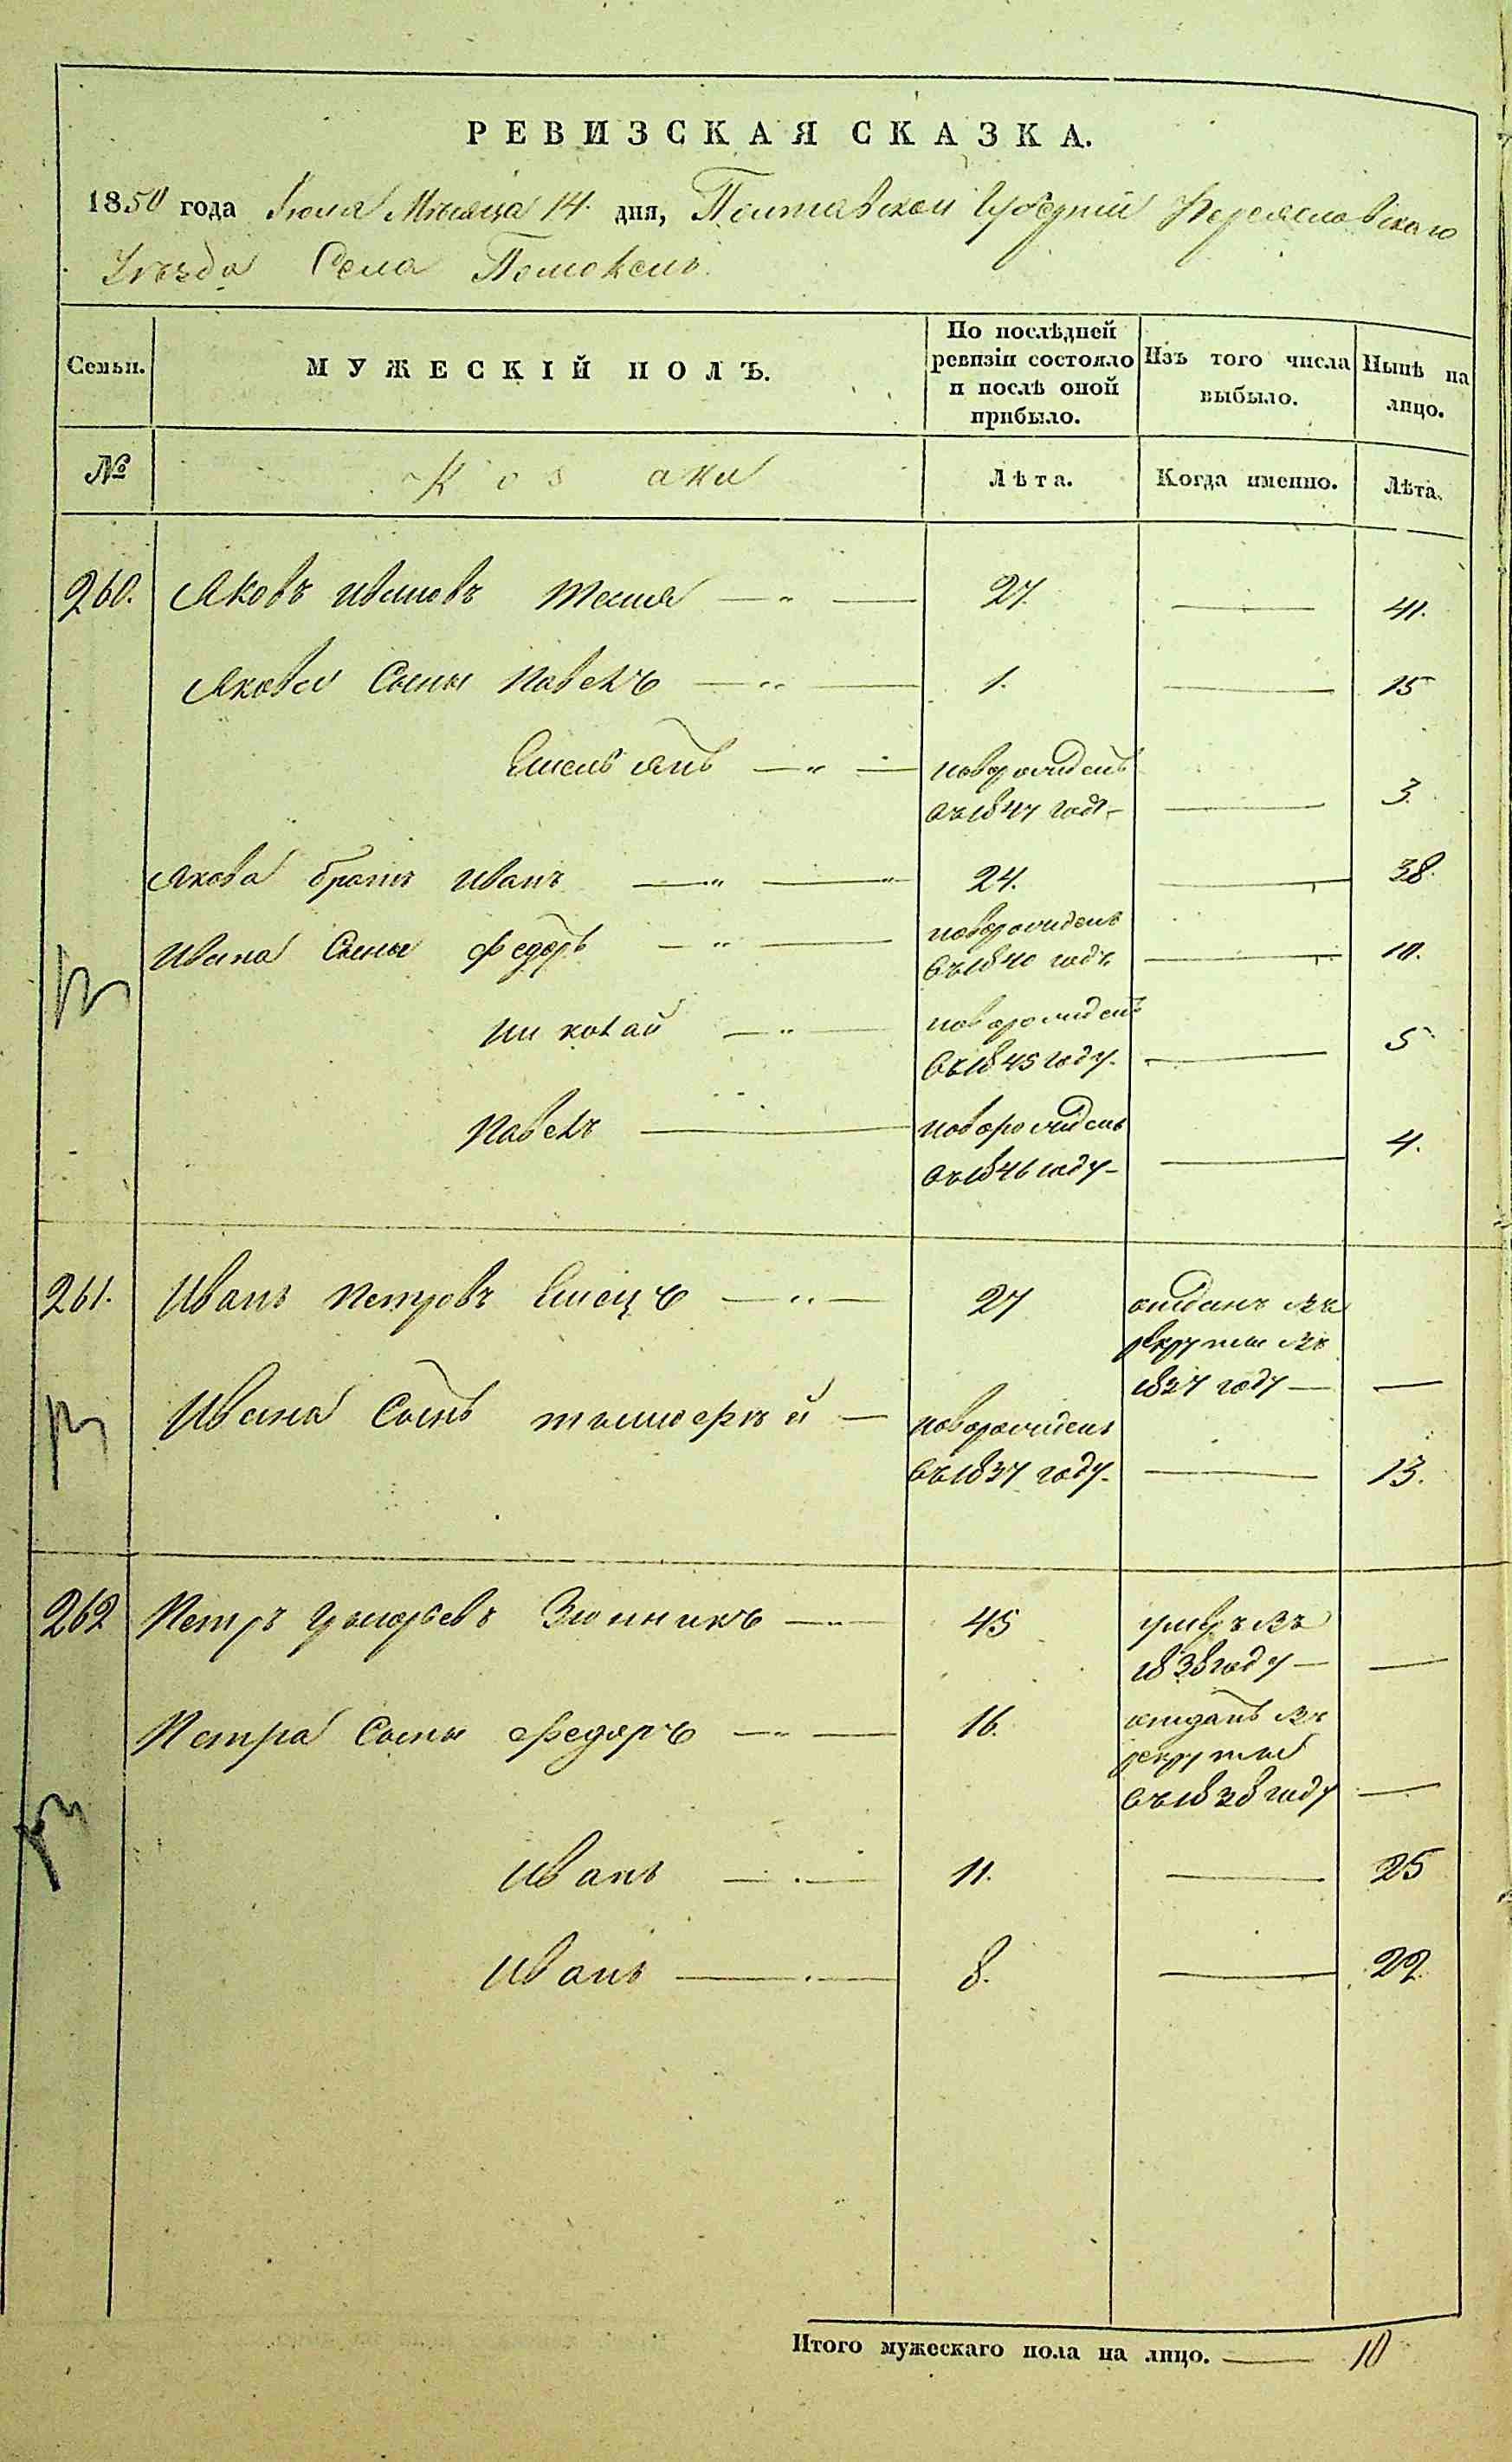 РЕВИЗСКАЯ СКАЗКА.
1850 года Іюля Мѣсяца 14. дня, Полтавской Губерніи Переяславскаго
Уѣзда Села Помоклей
Семьи.
МУЖЕСКІЙ ПОЛЪ.
По послѣдней ревизіи состояло и послѣ оной прибыло.
Изъ того числа выбыло.
Нынѣ на лицо.
№
Козаки
Лѣта.
Когда именно.
Лѣта.
260. Яковъ Ивановъ 27. 41.
Якова Сыны Павелъ 1. 15
Емельянъ новорожденъ
въ 1847 годѣ 3.
Якова братъ Иванъ 24. 38.
Ивана Сыны Федоръ новорожденъ
въ 1840 годѣ 10.
Николай новорожденъ
въ 1845 году. 5
Павелъ новорожденъ
въ 1846 году 4.
261. Иванъ Петровъ Емецъ 27 отданъ въ
рекруты въ
1837 году
Ивана Сынъ тимофѣй новорожденъ
въ 1837 году. 13.
262 Петръ Григорьевъ 45 умеръ въ
1838 году
Петра Сыны Федоръ 16. отданъ въ
рекруты
въ 1838 году
Иванъ 11. 25
Иванъ 8. 22
Итого мужескаго пола на лицо. 10